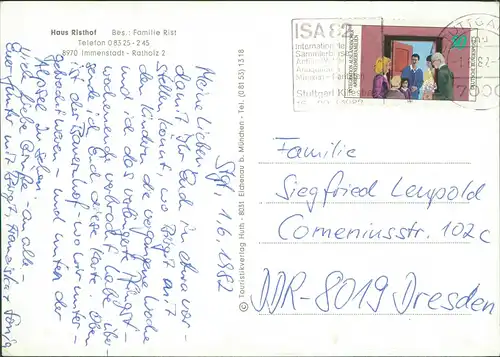 Haus Risthof Bes.: Familie Rist
Telefon 0 83 25 - 2 45
8970 Immenstadt - Ratholz 2
Stgt, 1.6.1982
Meine Lieben,
damit Ihr Euch in etwa vor-
stellen könnt, wo Birgit mit
den Kindern die vergangene Woche
und ich das verlängerte Pfingst-
wochenende verbracht habe, über-
sende ich Euch diese Karte. Oben
ist der Bauernhof - wo wir unter-
gebracht waren - und unten der
zu sehen.
Viele liebe Grüße an alle
mit Birgit,
© Touristikverlag Huth - 8031 Eichenau b. München - Tel. (0 81 53) 13 18
ISA 82
Internationale
Stuttgart Killesberg
STUTTGART
7000
INTEGRATION AUSLÄNDISCHER ARBEITNEHMERFAMILIEN
Familie
Siegfried Leupold
Comeniusstr. 102c
DDR-8019 Dresden